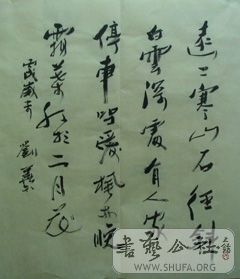 遠上寒山石徑斜
白雲深處有人家
停車坐愛楓林晚
霜葉紅於二月花
劉
書藝公社
WWW.SHUFA.ORG